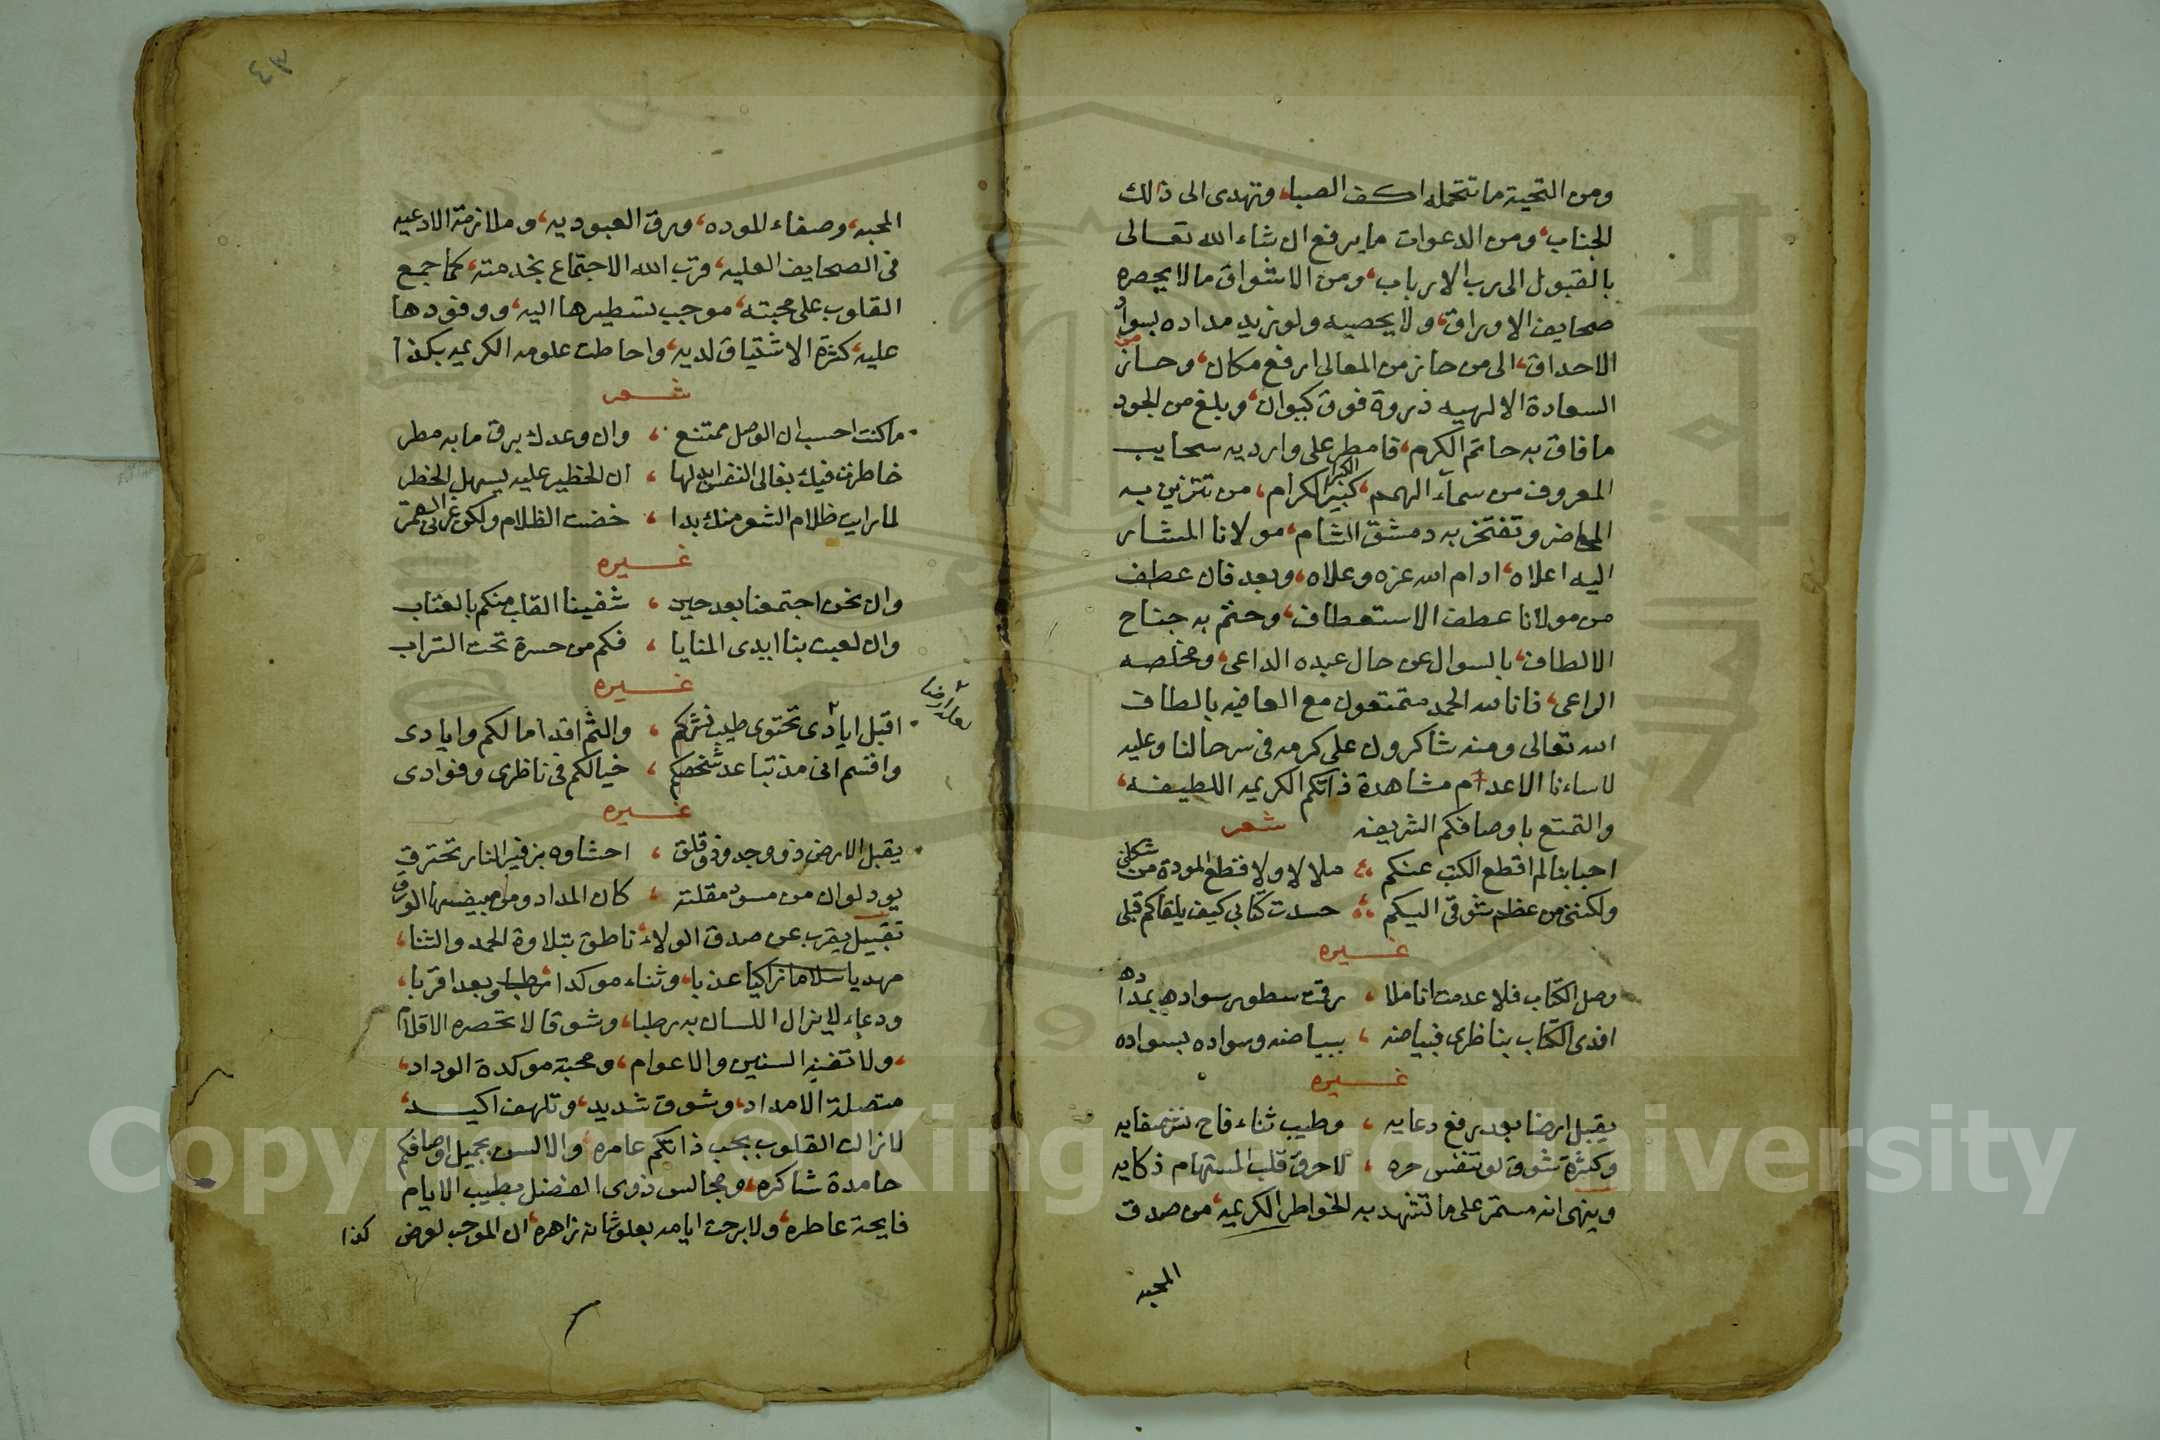 ومن التحية ما تتحمله اكف الصبا، وتهدى الى ذلك
الجناب، ومن الدعوات ما يرفع ان شاء الله تعالى
بالقبول الى رب الارباب، ومن الاشواق ما لا يحصره
صحايف الاوراق، ولا يحصيه ولو نزيد مداده بسواد
الاحداق، الى من حاز من المعالى ارفع مكان، وحاز من
السعادة الالهيه ذروة فوق كيوان، وبلغ من الجود
ما فاق به حاتم الكرم، فامطر على وارديه سحايب
المعروف من سماء الهمم، كبير الكرام، من تتزين به
المحاضر وتفتخر به دمشق الشام، مولانا المشار
اليه اعلاه، ادام الله عزه وعلاه، وبعد فان عطف
من مولانا عطف الاستعطاف، وحثم به جناح
الالطاف، بالسوال عن حال عبده الداعى، ومخلصه
الراعى، فانا لله الحمد متمتعون مع العافيه بالطاف
الله تعالى ومنه شاكرون على كرمه فى سرحالنا وعليه
لا ساءنا الا عدم مشاهدة ذاتكم الكريمه اللطيفه،
والتمتع باوصافكم الشريفه شعر
احبابنا لم اقطع الكتب عنكم ، ملالا ولا قطع المودة من شكلى
ولكننى من عظم شوقى اليكم ، حسدت كتابى كيف يلقاكم قبلى
غيره
وصل الكتاب فلا عدمت اناملا ، رقمت سطور سواده بمداده
افدى الكتاب بناظرى فبياضه ، ببياضه وسواده بسواده
غيره
يقبل ارضا بعد رفع دعايه ، وطيب ثناء فاح نشر صفايه
وكثرة شوق لو تنفس حره ، لاحرق قلب المستهام ذكايه
وينهى انه مستمر على ما تشهد به الخواطر الكريمه، من صدق
المحبه
٤٣
المحبه، وصفاء الموده، ورق العبوديه، وملازمة الادعيه
فى الصحايف العليه، قرب الله الاجتماع بخدمته، كما جمع
القلوب على محبته، موجب تسطيرها اليه، ووفودها
عليه، كثرة الاشتياق لديه، واحاطت علومه الكريمه بكذا
شعر
ما كنت احسب ان الوصل ممتنع ، وان وعدك برق ما به مطر
خاطرت فيك بغالى النفس ابذلها ، ان الخطير عليه يسهل الخطر
لما رايت ظلام الشعر منك بدا ، خضت الظلام ولكن غرنى القمر
غيره
وان نحن اجتمعنا بعد حين ، شفينا القلب منكم بالعتاب
وان لعبت بنا ايدى المنايا ، فكم من حسرة تحت التراب
غيره
اقبل ايادى تحتوى طيب نشركم ، والثم اقداما لكم وايادى
واقسم انى مذ تباعد شخصكم ، خيالكم فى ناظرى وفوادى
غيره
يقبل الارض ذو وجد وذو قلق ، احشاوه بزفير النار تحترق
يود لو ان من مسود مقلته ، كان المداد ومن مبيضها الورق
تقبيل يقرب عن صدق الولاء، ناطق بتلاوة الحمد والثنا،
مهديا سلاما زاكيا عذبا، وثناء موكدا وبعدا قربا،
ودعاء لا يزال اللسان به رطبا، وشوقا لا تحصره الاقلام
، ولا تفنيه السنين والاعوام، ومحبة موكدة الوداد،
متصلة الامداد، وشوق شديد، وتلهف اكيد،
لا زالت القلوب بحب ذاتكم عامره، والالسن بجميل اوصافكم
حامدة شاكره، ومجالس ذوى الفضل بطيب الايام
فايحة عاطره، ولا برحت ايامه بعلو شانه زاهره، ان الموجب لعرض كذا
Copyright © King Saud University